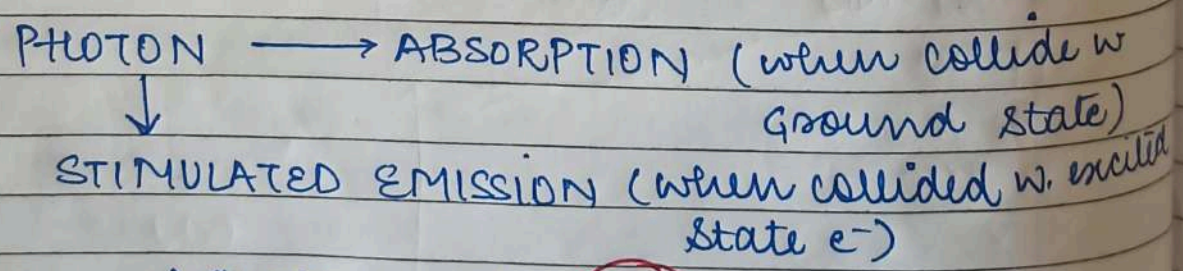 PHOTON → ABSORPTION (when collide w
ground state)
↓
STIMULATED EMISSION (when collided w. excited
state e-)